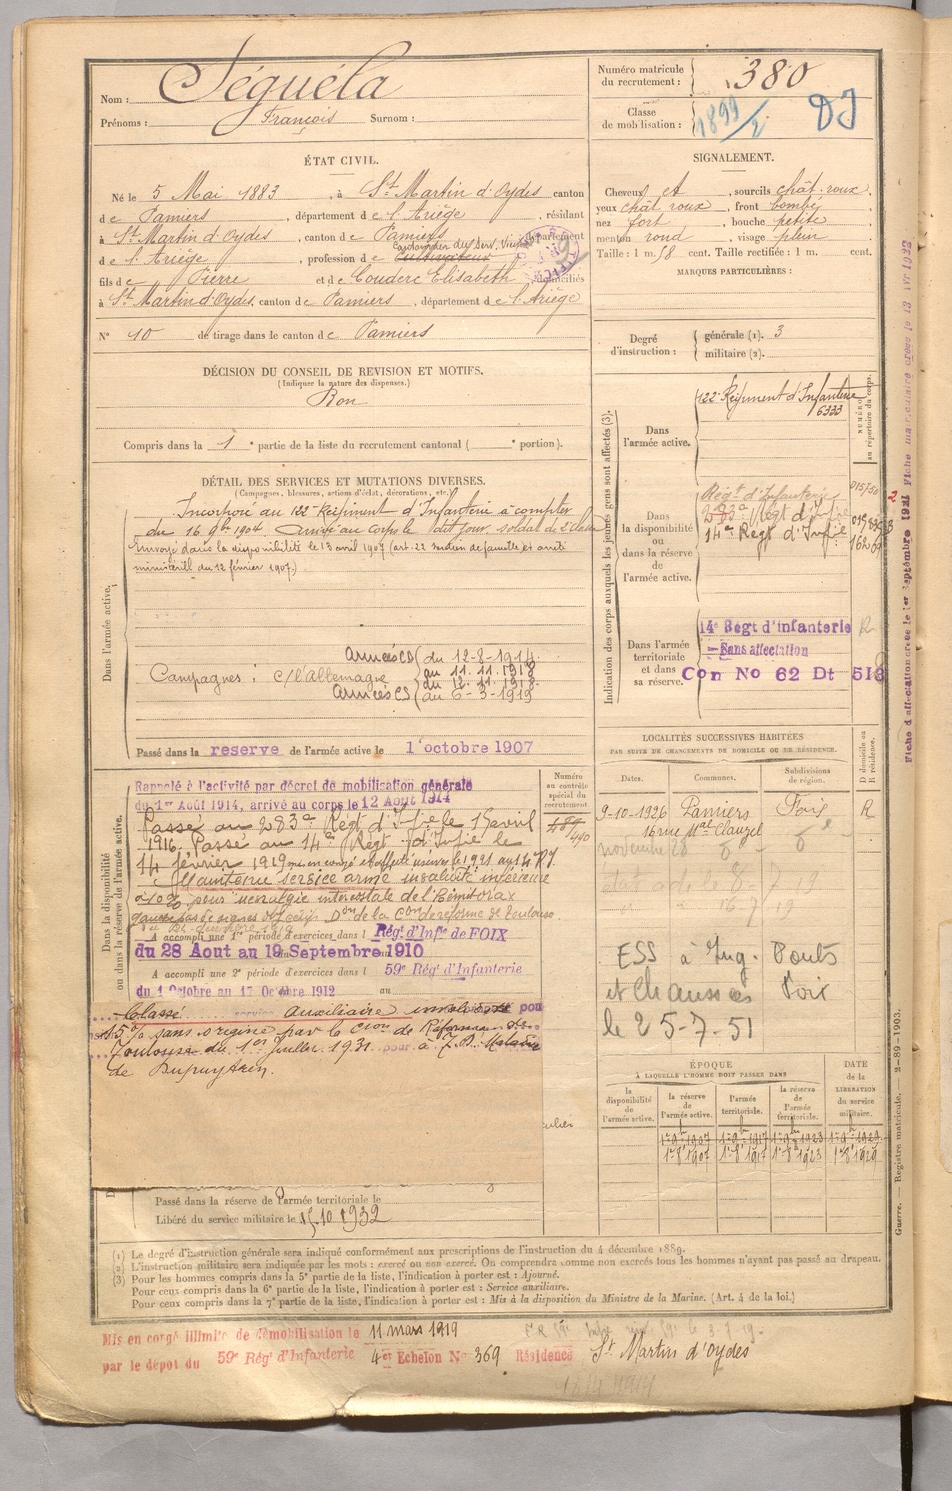 Nom : Séguéla
Prénoms : François Surnom :
Numéro matricule du recrutement : 380
Classe de mobilisation : 1899/2 DJ
ÉTAT CIVIL.
Né le 5 Mai 1883, à St Martin d'Oydes canton
de Pamiers, département de l'Ariège, résidant
à St Martin d'Oydes, canton de Pamiers, département
de l'Ariège, profession de Cultivateur Cantonnier du Serv. Vicinal
fils de Pierre et de Couderc Elisabeth domiciliés
à St Martin d'Oydes, canton de Pamiers, département de l'Ariège
N° 10 de tirage dans le canton de Pamiers
SIGNALEMENT.
Cheveux et, sourcils chât. roux,
yeux chât roux, front bombé
nez fort, bouche petite
menton rond, visage plein
Taille : 1 m. 58 cent. Taille rectifiée : 1 m. cent.
MARQUES PARTICULIÈRES :
Degré d'instruction : générale (1). 3
militaire (2).
DÉCISION DU CONSEIL DE REVISION ET MOTIFS.
(Indiquer la nature des dispenses.)
Bon
Compris dans la 1e partie de la liste du recrutement cantonal ( e portion).
DÉTAIL DES SERVICES ET MUTATIONS DIVERSES.
(Campagnes, blessures, actions d'éclat, décorations, etc.)
Dans l'armée active.
Incorporé au 122e Régiment d'Infanterie à compter
du 16 9bre 1904 Arrivé au corps le dit jour. soldat de 2e classe
Envoyé dans la disponibilité le 13 avril 1907 (art. 22 soutien de famille et arrêté
ministériel du 12 février 1907.)
Campagnes : c/ l'Allemagne
Armées CD du 12-8-1914
au 11.11.1918
Armées CS du 12.11.1918
au 6-3-1919
Passé dans la reserve de l'armée active le 1 octobre 1907
Indication des corps auxquels les jeunes gens sont affectés (3).
NUMÉRO au répertoire du corps.
Dans l'armée active.
122e Régiment d'Infanterie
6333
Dans la disponibilité ou dans la réserve de l'armée active.
Régt d'Infanterie
283e Régt d'Infie
14e Régt d'Infie
Dans l'armée territoriale et dans sa réserve.
14e Regt d'infanterie
Sans affectation
Con No 62 Dt 513
Dans la disponibilité ou dans la réserve de l'armée active.
Numéro au contrôle spécial du recrutement
Rappelé à l'activité par décret de mobilisation générale
du 1er Août 1914, arrivé au corps le 12 Aout 1914
Passé au 283e Régt d'Infie le 15 avril
1916. Passé au 14e Régt d'Infie le
14 février 1919
Maintenu service armé invalidité inférieure
à 10% pour névralgie intercostale de l'hémithorax
gauche pas de signes Don de la Con de réforme de Toulouse
A accompli une 1e période d'exercices dans l Régt d'Infie de FOIX
du 28 Aout au 19 Septembre 1910
A accompli une 2e période d'exercices dans l 59e Régt d'Infanterie
du 1 Octobre au 17 Octobre 1912 au
Classé service auxiliaire invalidité pour
15% sans origine par la Cion de Réforme de
Toulouse du 1er Juillet 1931 pour à Maladie
de Dupuytren.
LOCALITÉS SUCCESSIVES HABITÉES
PAR SUITE DE CHANGEMENTS DE DOMICILE OU DE RÉSIDENCE.
D domicile ou R résidence.
Dates. Communes. Subdivisions de région.
9-10-1926 Pamiers Foix R
16 rue Mal Clauzel
novembre 28
ESS à Ing. Ponts
et Chaussées Foix
le 25-7-51
ÉPOQUE
À LAQUELLE L'HOMME DOIT PASSER DANS
la disponibilité de l'armée active.
la réserve de l'armée active.
l'armée territoriale.
la réserve de l'armée territoriale.
DATE de la LIBÉRATION du service militaire.
1er 9bre 1907 1er 9bre 1917 1er 9bre 1923 1er 9bre 1929
1er 8bre 1907 1er 8bre 1917 1er 8bre 1923 1er 8bre 1929
Passé dans la réserve de l'armée territoriale le
Libéré du service militaire le 15.10 1932
(1) Le degré d'instruction générale sera indiqué conformément aux prescriptions de l'instruction du 4 décembre 1889.
(2) L'instruction militaire sera indiquée par les mots : exercé ou non exercé. On comprendra comme non exercés tous les hommes n'ayant pas passé au drapeau.
(3) Pour les hommes compris dans la 5e partie de la liste, l'indication à porter est : Ajourné.
Pour ceux compris dans la 6e partie de la liste, l'indication à porter est : Service auxiliaire.
Pour ceux compris dans la 7e partie de la liste, l'indication à porter est : Mis à la disposition du Ministre de la Marine. (Art. 4 de la loi.)
Mis en congé illimité de démobilisation le 11 mars 1919
par le dépôt du 59e Régt d'Infanterie 4e Echelon No 369 Résidence St Martin d'Oydes
Guerre. — Registre matricule. — 2-89-1903.